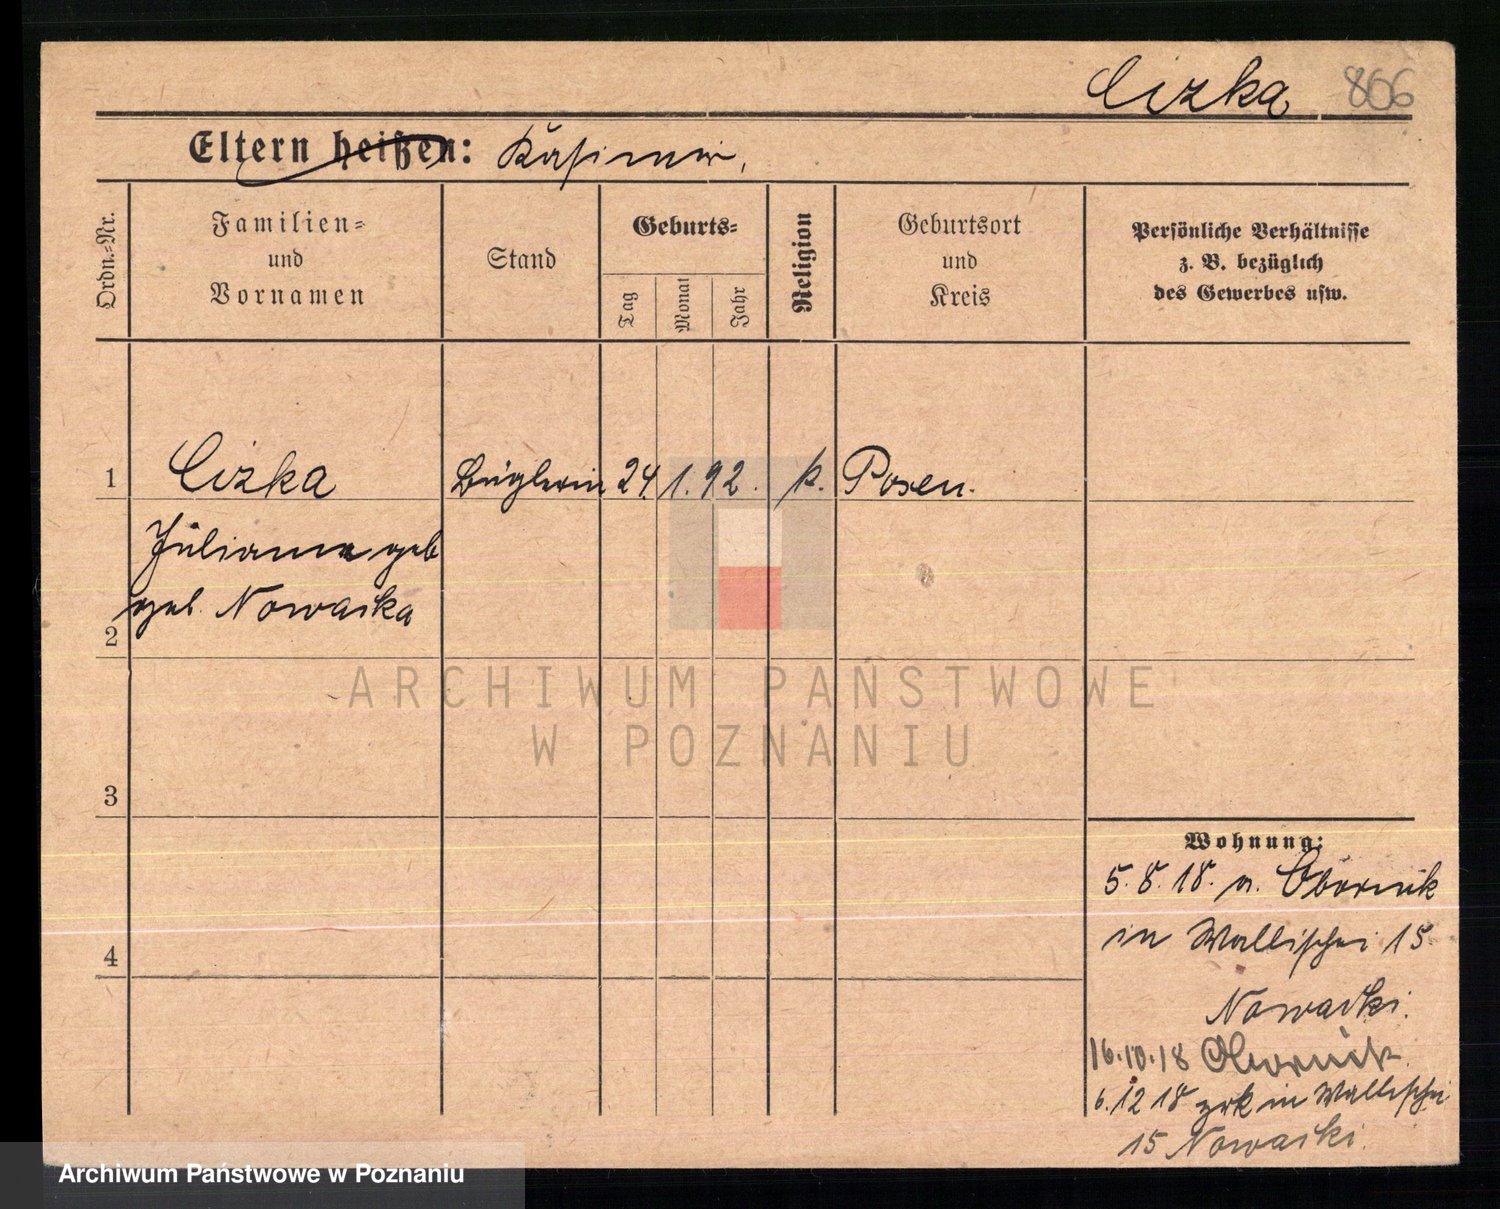 Cizka 866
Eltern heißen: Kasimir,
Ordn.-Nr.
Familien-
und
Vornamen
Stand
Geburts-
Tag
Monat
Jahr
Religion
Geburtsort
und
Kreis
Persönliche Verhältnisse
z. B. bezüglich
des Gewerbes usw.
1 Cizka Büglerin 24. 1. 92. k. Posen.
Julianna geb
2 geb. Nowacka
3
4
Wohnung:
5. 8. 18. n. Obornik
in Wallischei 15
Nowacki.
16.10.18 Obornik
6.12 18 zrk in Wallischei
15 Nowacki.
ARCHIWUM PAŃSTWOWE
W POZNANIU
Archiwum Państwowe w Poznaniu